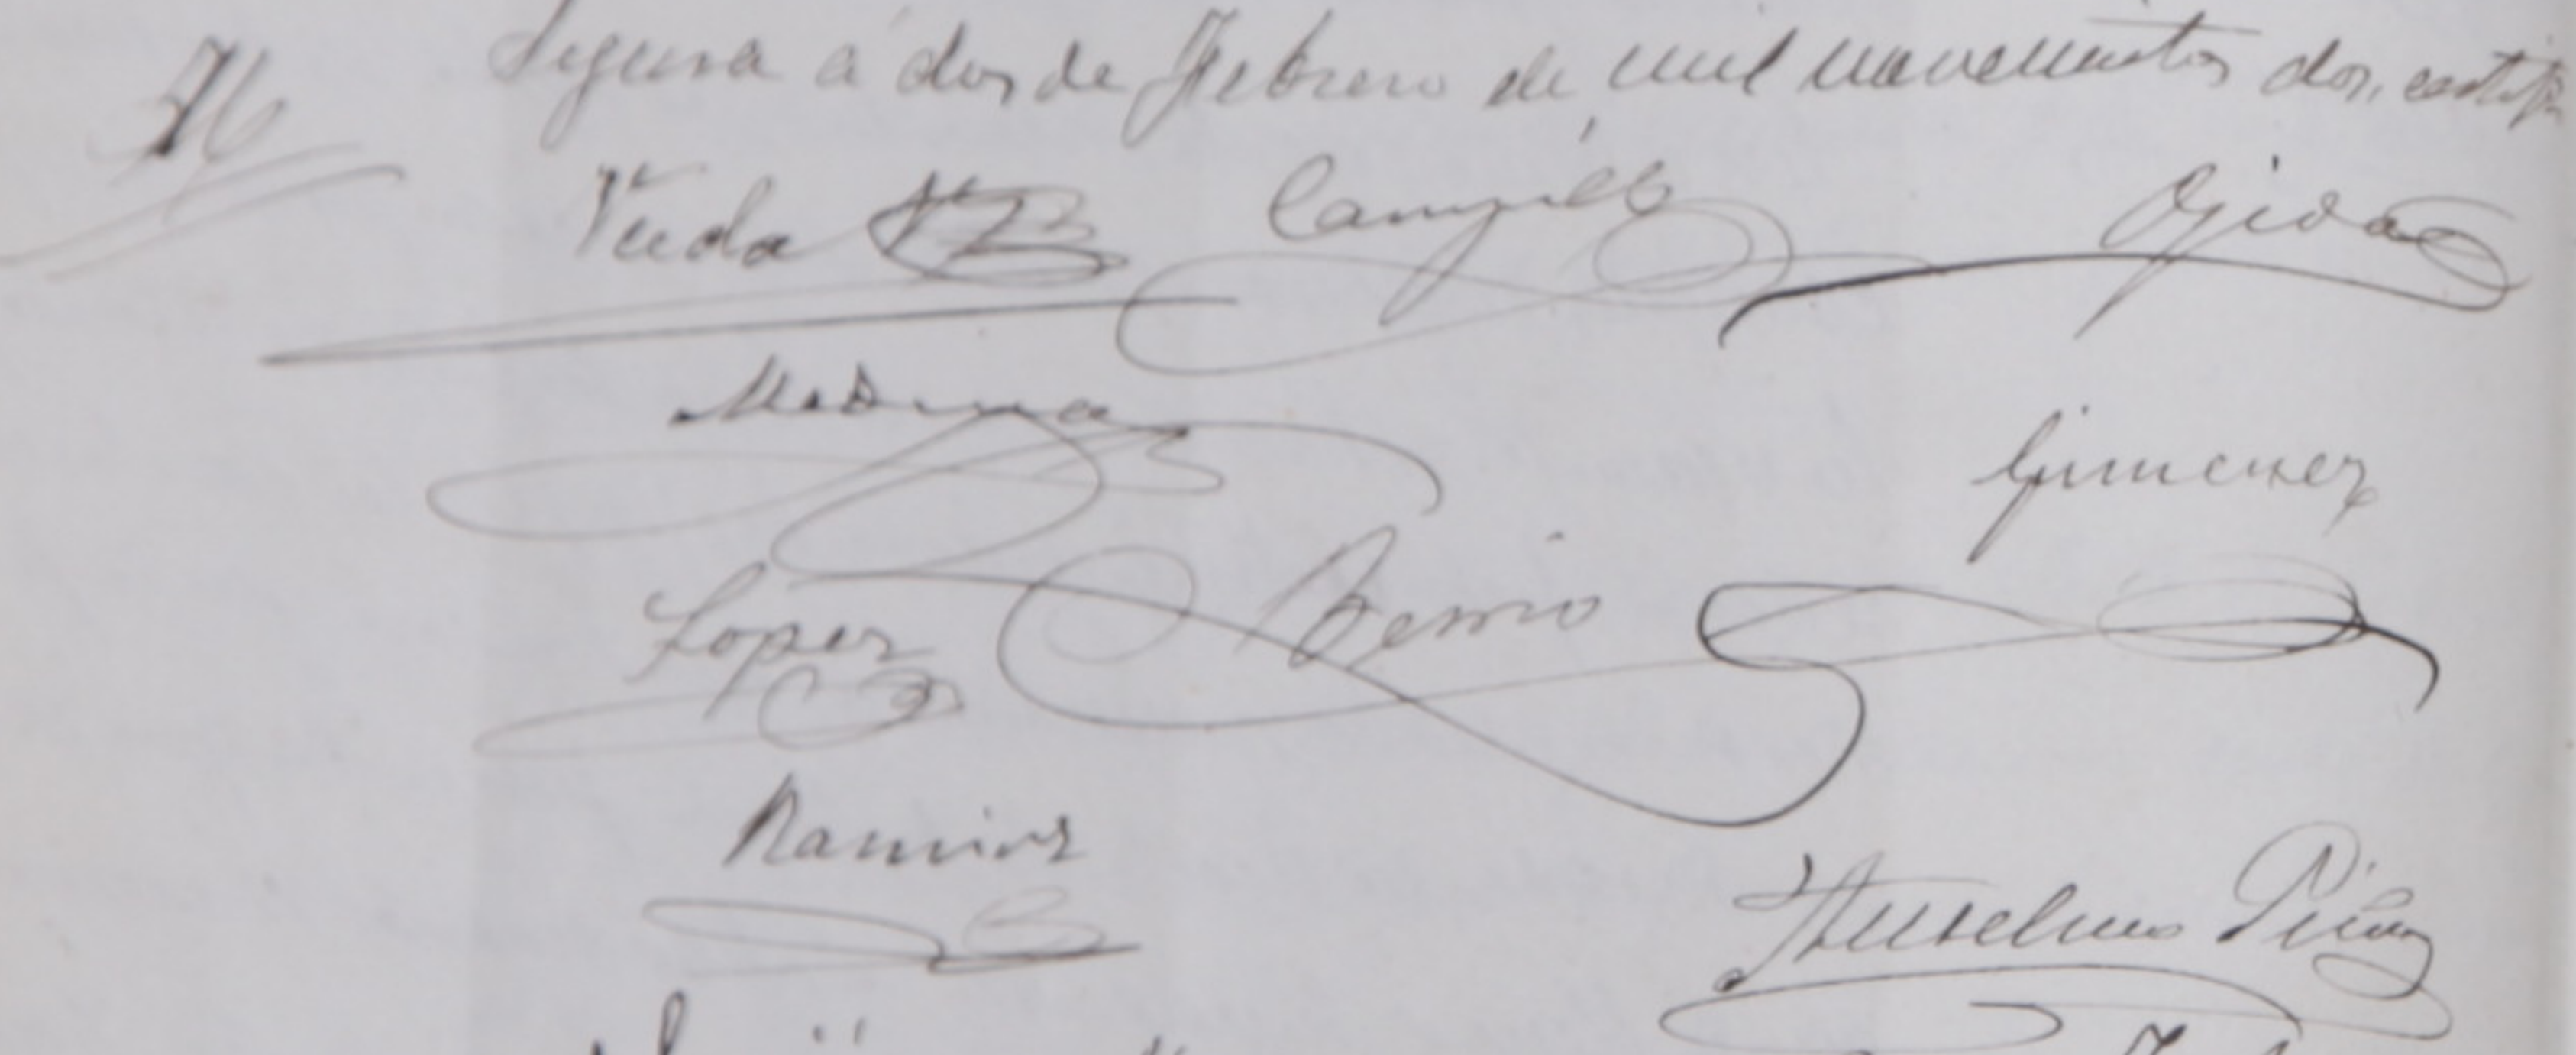 Segura á dos de Febrero de mil novecientos dos, certifico
Campillo Ojeda
Medina
Gimenez
Lopez Berrio
Ramirez
Anselmo Piñar